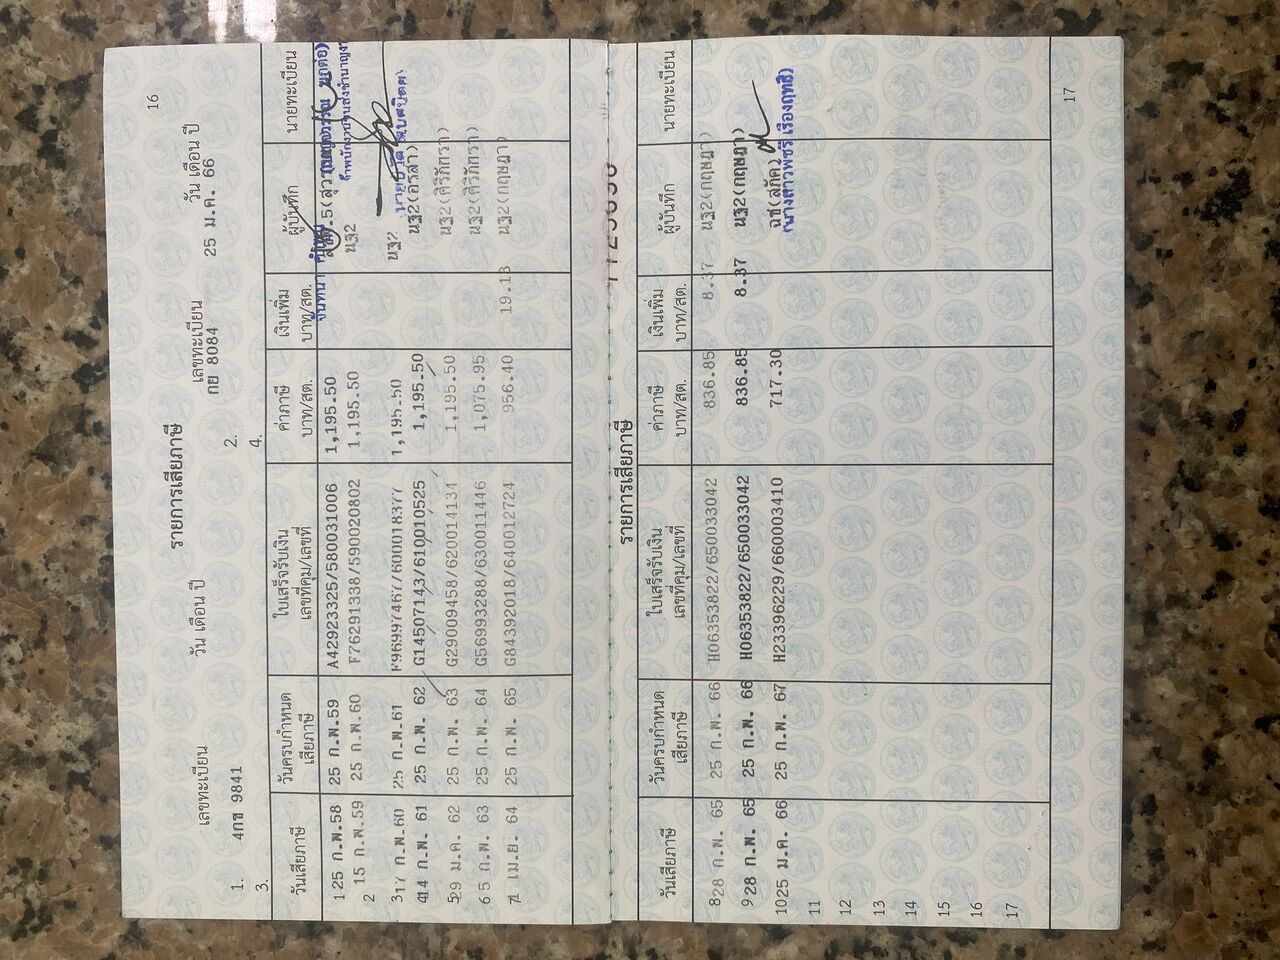 16
รายการเสียภาษี
เลขทะเบียน วัน เดือน ปี เลขทะเบียน วัน เดือน ปี
1. 4กข 9841 2. กย 8084 25 ม.ค. 66
3. 4.
วันเสียภาษี วันครบกำหนดเสียภาษี ใบเสร็จรับเงิน เลขที่คุม/เลขที่ ค่าภาษี บาท/สต. เงินเพิ่ม บาท/สต. ผู้บันทึก นายทะเบียน
1 25 ก.พ.58 25 ก.พ.59 A42923325/580031006 1,195.50
2 15 ก.พ.59 25 ก.พ.60 F76291338/590020802 1,195.50 นฐ2
3 17 ก.พ.60 25 ก.พ.61 F96997467/600018377 1,195.50 นฐ2
4 14 ก.พ. 61 25 ก.พ. 62 G14507143/610010525 1,195.50 นฐ2(อรสา)
5 29 ม.ค. 62 25 ก.พ. 63 G29009458/620014134 1,195.50 นฐ2(ศิริภัทรา)
6 5 ก.พ. 63 25 ก.พ. 64 G56993288/630011446 1,075.95 นฐ2(ศิริภัทรา)
7 1 เม.ย. 64 25 ก.พ. 65 G84392018/640012724 956.40 19.13 นฐ2(กฤษฎา)
รายการเสียภาษี
วันเสียภาษี วันครบกำหนดเสียภาษี ใบเสร็จรับเงิน เลขที่คุม/เลขที่ ค่าภาษี บาท/สต. เงินเพิ่ม บาท/สต. ผู้บันทึก นายทะเบียน
8 28 ก.พ. 65 25 ก.พ. 66 H06353822/650033042 836.85 8.37 นฐ2(กฤษฎา)
9 28 ก.พ. 65 25 ก.พ. 66 H06353822/650033042 836.85 8.37 นฐ2(กฤษฎา)
10 25 ม.ค. 66 25 ก.พ. 67 H23396229/660003410 717.30 ฉช(สภัค)
(นางสาวพัชรี เรืองฤทธิ์)
11
12
13
14
15
16
17
17